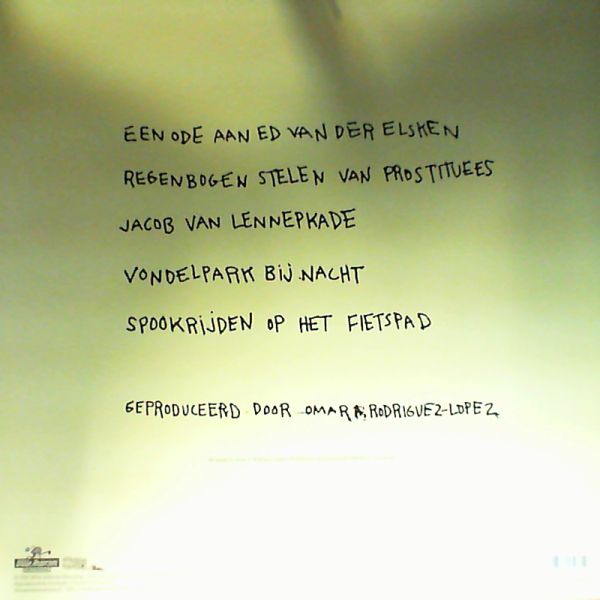 EEN ODE AAN ED VAN DER ELSKEN
REGENBOGEN STELEN VAN PROSTITUEES
JACOB VAN LENNEPKADE
VONDELPARK BIJ NACHT
SPOOKRIJDEN OP HET FIETSPAD
GEPRODUCEERD DOOR OMAR A. RODRIGUEZ-LOPEZ